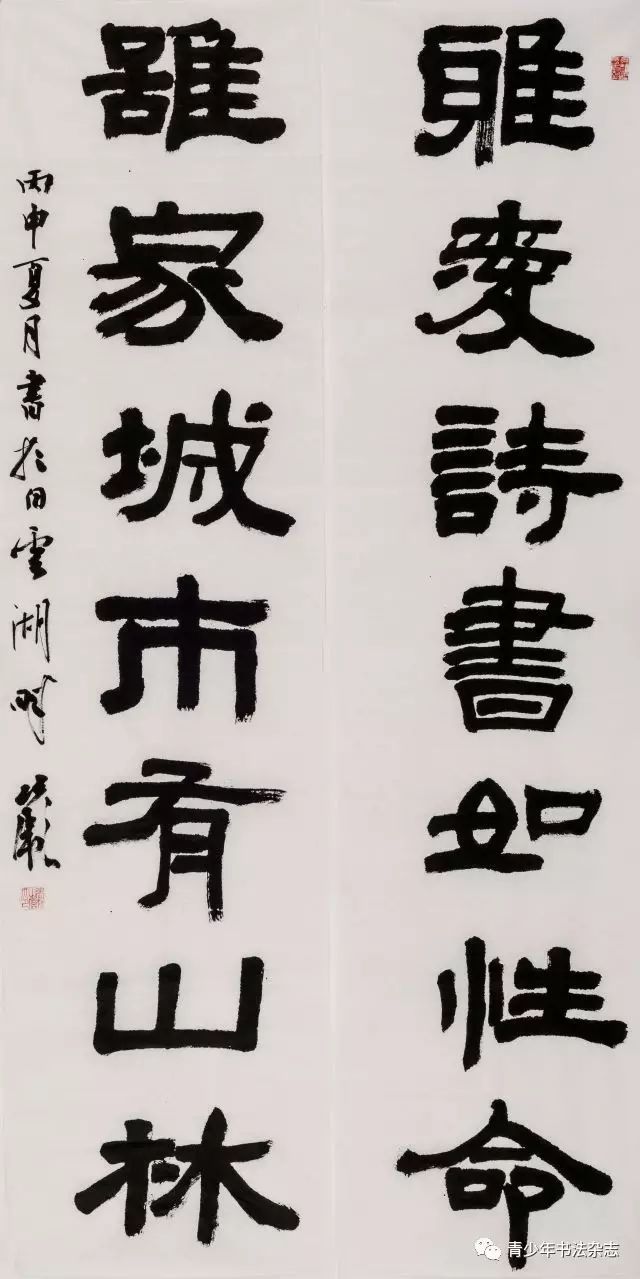 雅愛詩書如性命
雖家城市有山林
丙申夏月書於白雲湖畔
青少年书法杂志